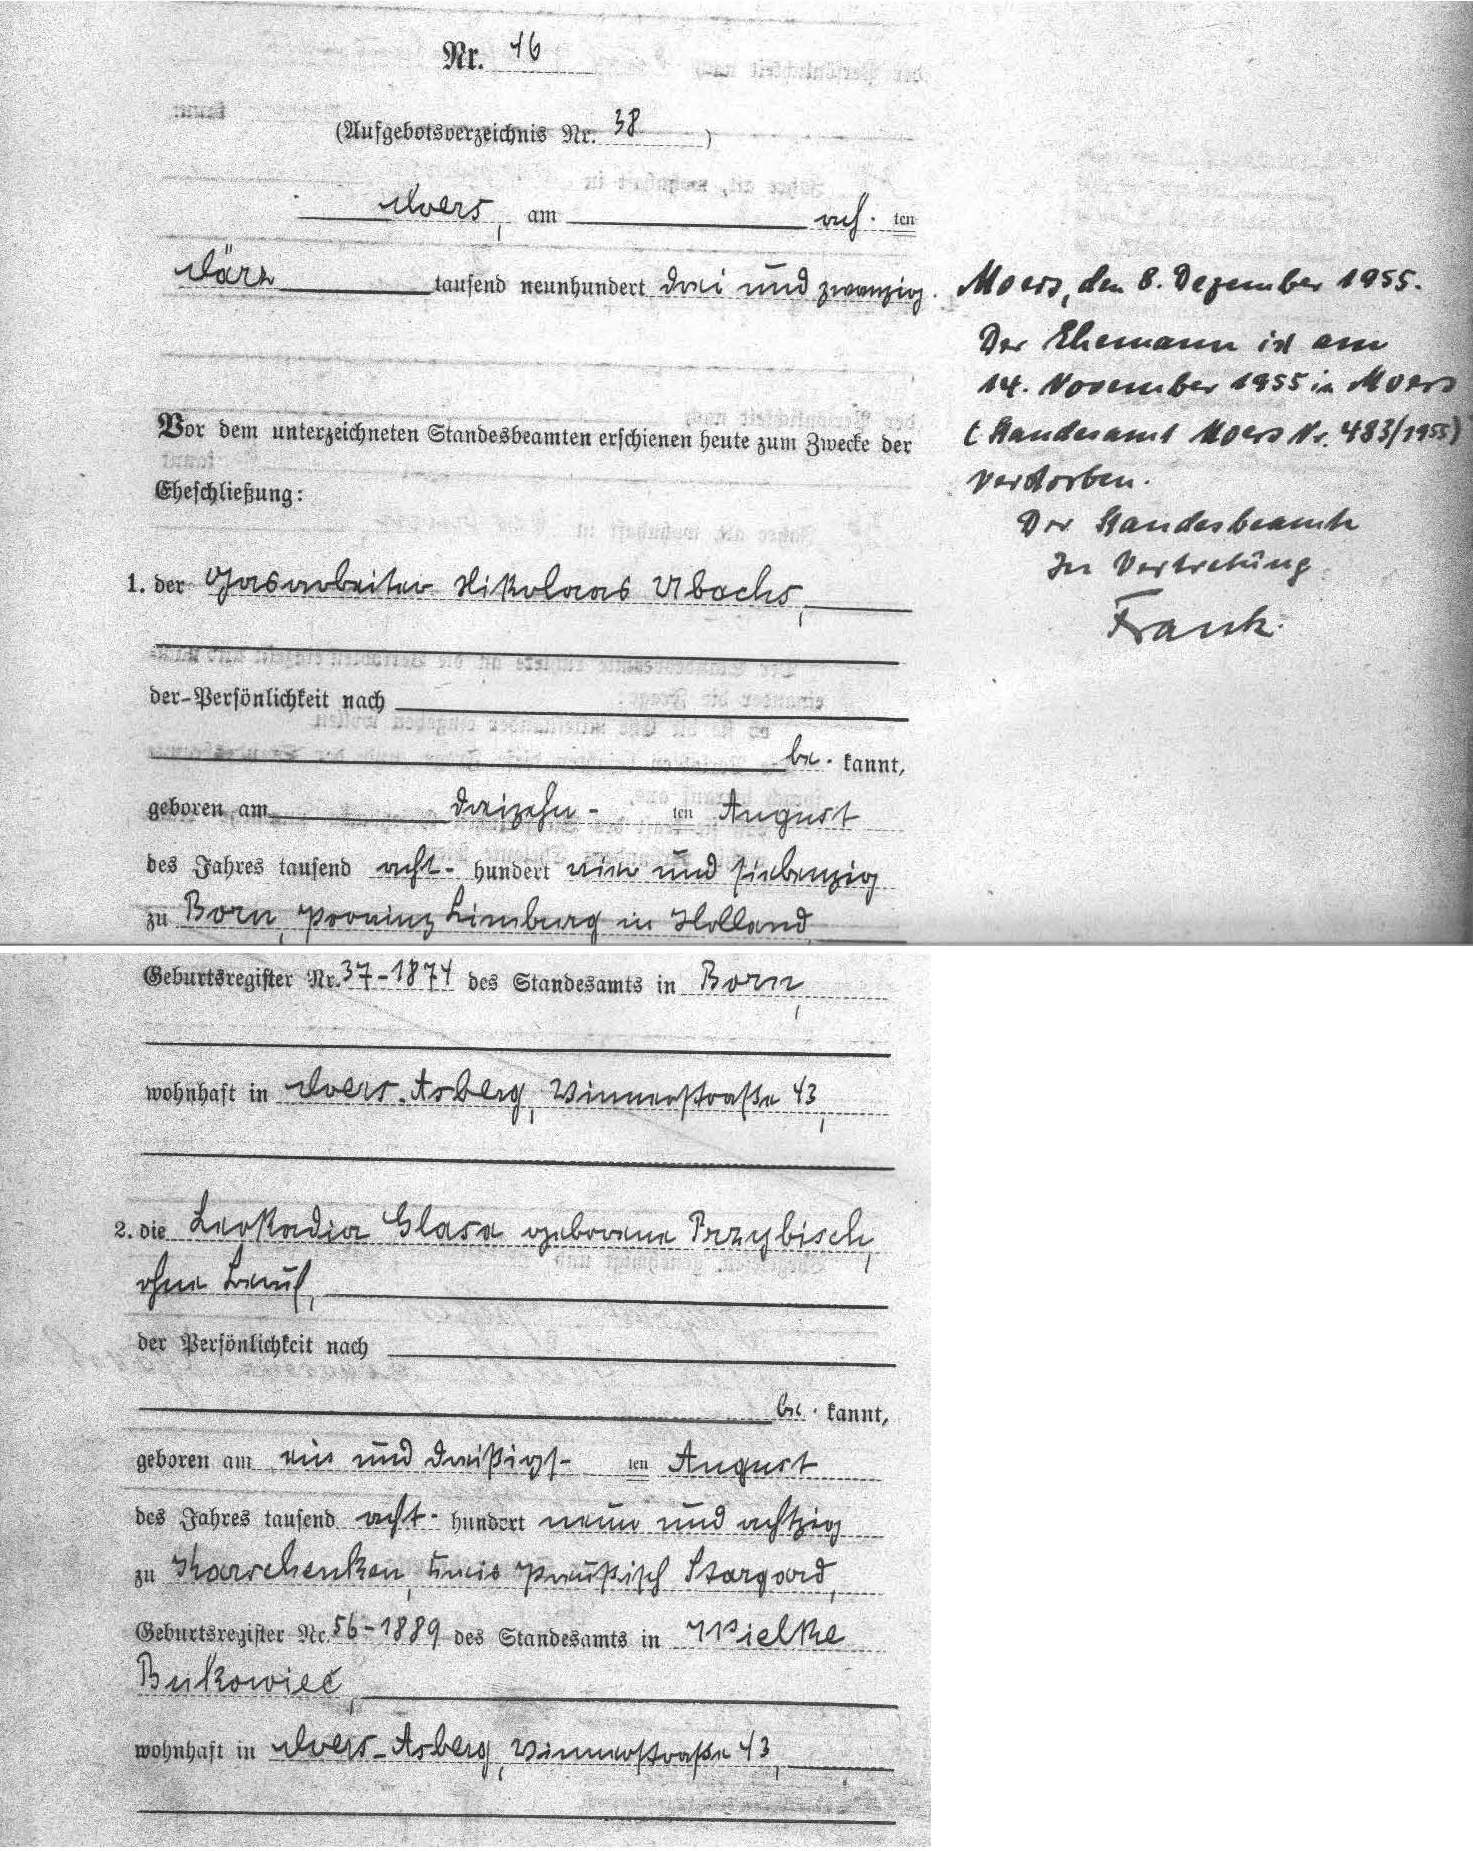 Nr. 46
(Aufgebotsverzeichnis Nr. 38)
Moers, am ach-ten
März tausend neunhundert drei und zwanzig.
Vor dem unterzeichneten Standesbeamten erschienen heute zum Zwecke der
Eheschließung:
1. der Gasarbeiter Nikolaas Ubachs,
der Persönlichkeit nach
be-kannt,
geboren am dreizehn-ten August
des Jahres tausend acht-hundert vier und siebenzig
zu Born, Provinz Limburg in Holland,
Geburtsregister Nr. 37-1874 des Standesamts in Born,
wohnhaft in Moers-Asberg, Winnerstraße 43,
2. die Leokadia Glasa geborene Przybisch,
ohne Beruf,
der Persönlichkeit nach
be-kannt,
geboren am ein und dreißigs-ten August
des Jahres tausend acht-hundert neun und achtzig
zu Karschenken, Kreis Preußisch Stargard,
Geburtsregister Nr. 56-1889 des Standesamts in Wielke
Bukowiec,
wohnhaft in Moers-Asberg, Winnerstraße 43,
Moers, den 8. Dezember 1955.
Der Ehemann ist am
14. November 1955 in Moers
(Standesamt Moers Nr. 483/1955)
verstorben.
Der Standesbeamte
In Vertretung
Frank.